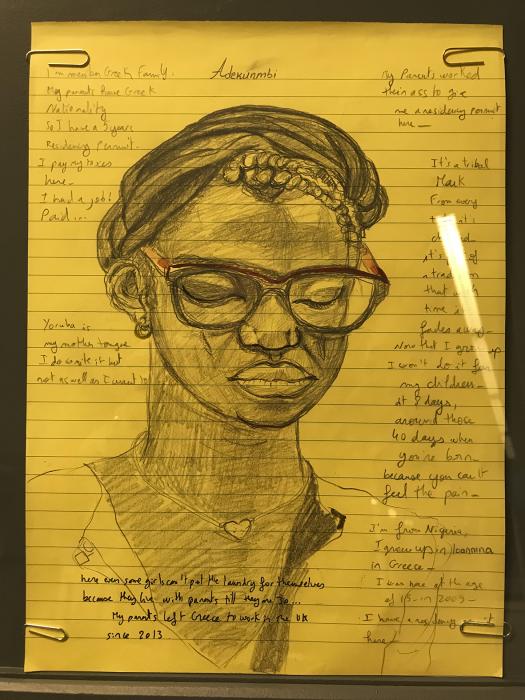 Adekunmbi
I'm member Greek Family.
My parents have Greek
Nationality
So I have a 5 years
Residency Permit.
I pay my taxes
here_
I had a job!
Paid...
Yoruba is
my mother tongue
I do write it but
not as well as I want to
My Parents worked
their ass to give
me a residency permit
here_
It's a tribal
Mark
From every
it's
a tradition
that with
time
fades away_
Now that I grow up
I won't do it for
my children_
at 8 days,
around those
40 days when
you're born_
because you can't
feel the pain_
I'm from Nigeria,
I grew up in Ioannina
in Greece_
I was here at the age
of 13 - in 2009 -
I have a residency
here_
here even some girls can't put the laundry for themselves
because they live with parents till they are 30...
My parents left Greece to work in the UK
since 2013